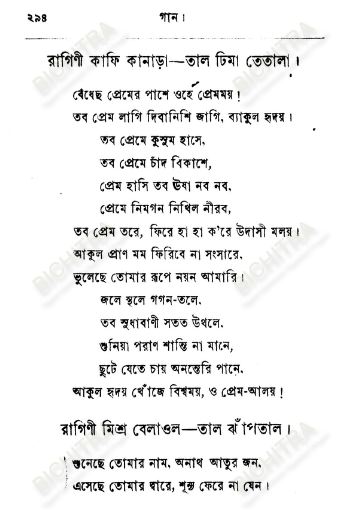 ২৯৪ গান।
রাগিণী কাফি কানাড়া—তাল ঢিমা তেতালা।
বেঁধেছ প্রেমের পাশে ওহে প্রেমময়!
তব প্রেম লাগি দিবানিশি জাগি, ব্যাকুল হৃদয়।
তব প্রেমে কুসুম হাসে,
তব প্রেমে চাঁদ বিকাশে,
প্রেম হাসি তব ঊষা নব নব,
প্রেমে নিমগন নিখিল নীরব,
তব প্রেম তরে, ফিরে হা হা ক'রে উদাসী মলয়।
আকুল প্রাণ মম ফিরিবে না সংসারে,
ভুলেছে তোমার রূপে নয়ন আমারি।
জলে স্থলে গগন-তলে,
তব সুধাবাণী সতত উথলে,
শুনিয়া পরাণ শান্তি না মানে,
ছুটে যেতে চায় অনন্তেরি পানে,
আকুল হৃদয় খোঁজে বিশ্বময়, ও প্রেম-আলয়!
রাগিণী মিশ্র বেলাওল—তাল ঝাঁপতাল।
শুনেছে তোমার নাম, অনাথ আতুর জন,
এসেছে তোমার দ্বারে, শূন্য ফেরে না যেন।
BICHITRA